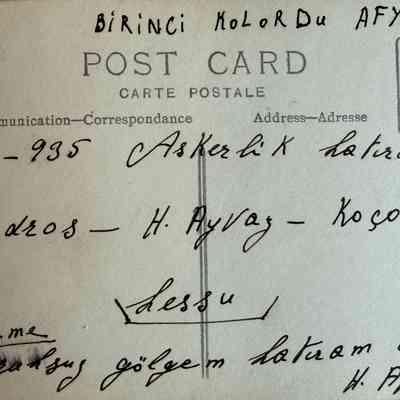 BİRİNCİ KOLORDU AFY
POST CARD
CARTE POSTALE
munication—Correspondance Address—Adresse
– 935 Askerlik hatır
dros – H. Ayvaz – Koço
Lessu
me
ruhsuz gölgem hatıram
H. A